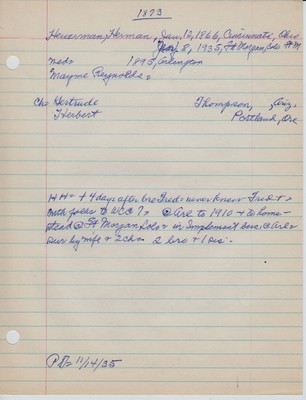 1873
Heuerman, Herman, Jan, 12, 1866, Cincinnate, Ohio
8, 1935, Ft Morgan, Colo
1895, Arlington
Mayme Reynolds,
Ch: Gertrude Thompson, Ariz.
Herbert Portland, Ore
HH + 4 days after bro Fred, never knew Fred +,
folks to WCC ?, @ Arl to 1910 + to home-
stead @ Ft Morgan Colo + in Implement busi, @ Arl
sur by wife + 2 ch 2 bro + 1 sis.
11/14/35